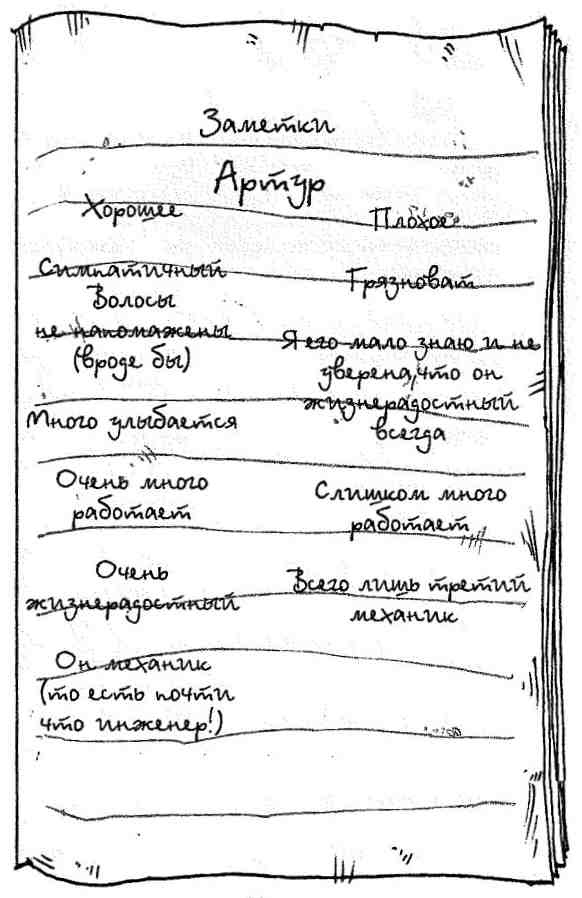 Заметки
Артур
Хорошее
Симпатичный
Волосы
не напомажены
(вроде бы)
Много улыбается
Очень много
работает
Очень
жизнерадостный
Он механик
(то есть почти
что инженер!)
Плохое
Грязноват
Я его мало знаю и не
уверена, что он
жизнерадостный
всегда
Слишком много
работает
Всего лишь третий
механик